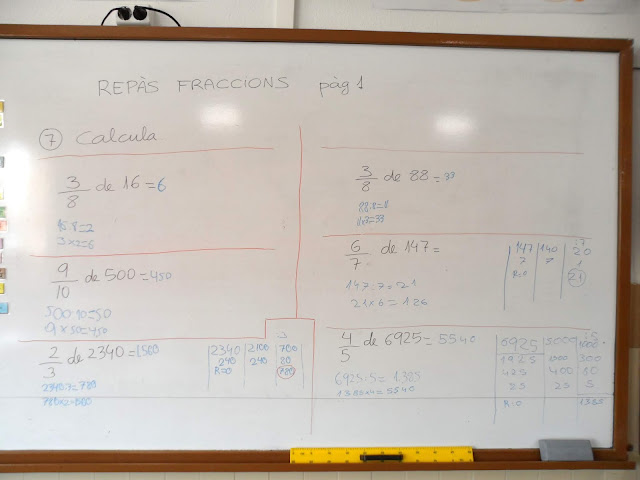 REPÀS FRACCIONS pàg 1
7 Calcula
3/8 de 16=6
16:8=2
3×2=6
9/10 de 500=450
500:10=50
9×50=450
2/3 de 2340=1560
2340:3=780
780×2=1560
2340 2100 700
240 240 80
R=0 780
3/8 de 88=33
88:8=11
11×3=33
6/7 de 147=
147:7=21
21×6=126
147 140 20
7 7 1
R=0 21
4/5 de 6925=5540
6925:5=1.385
1385×4=5540
6925 5000 1000
1925 300
425 400
25 25 5
R=0 1385